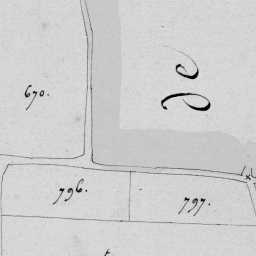 de
670.
796.
797.